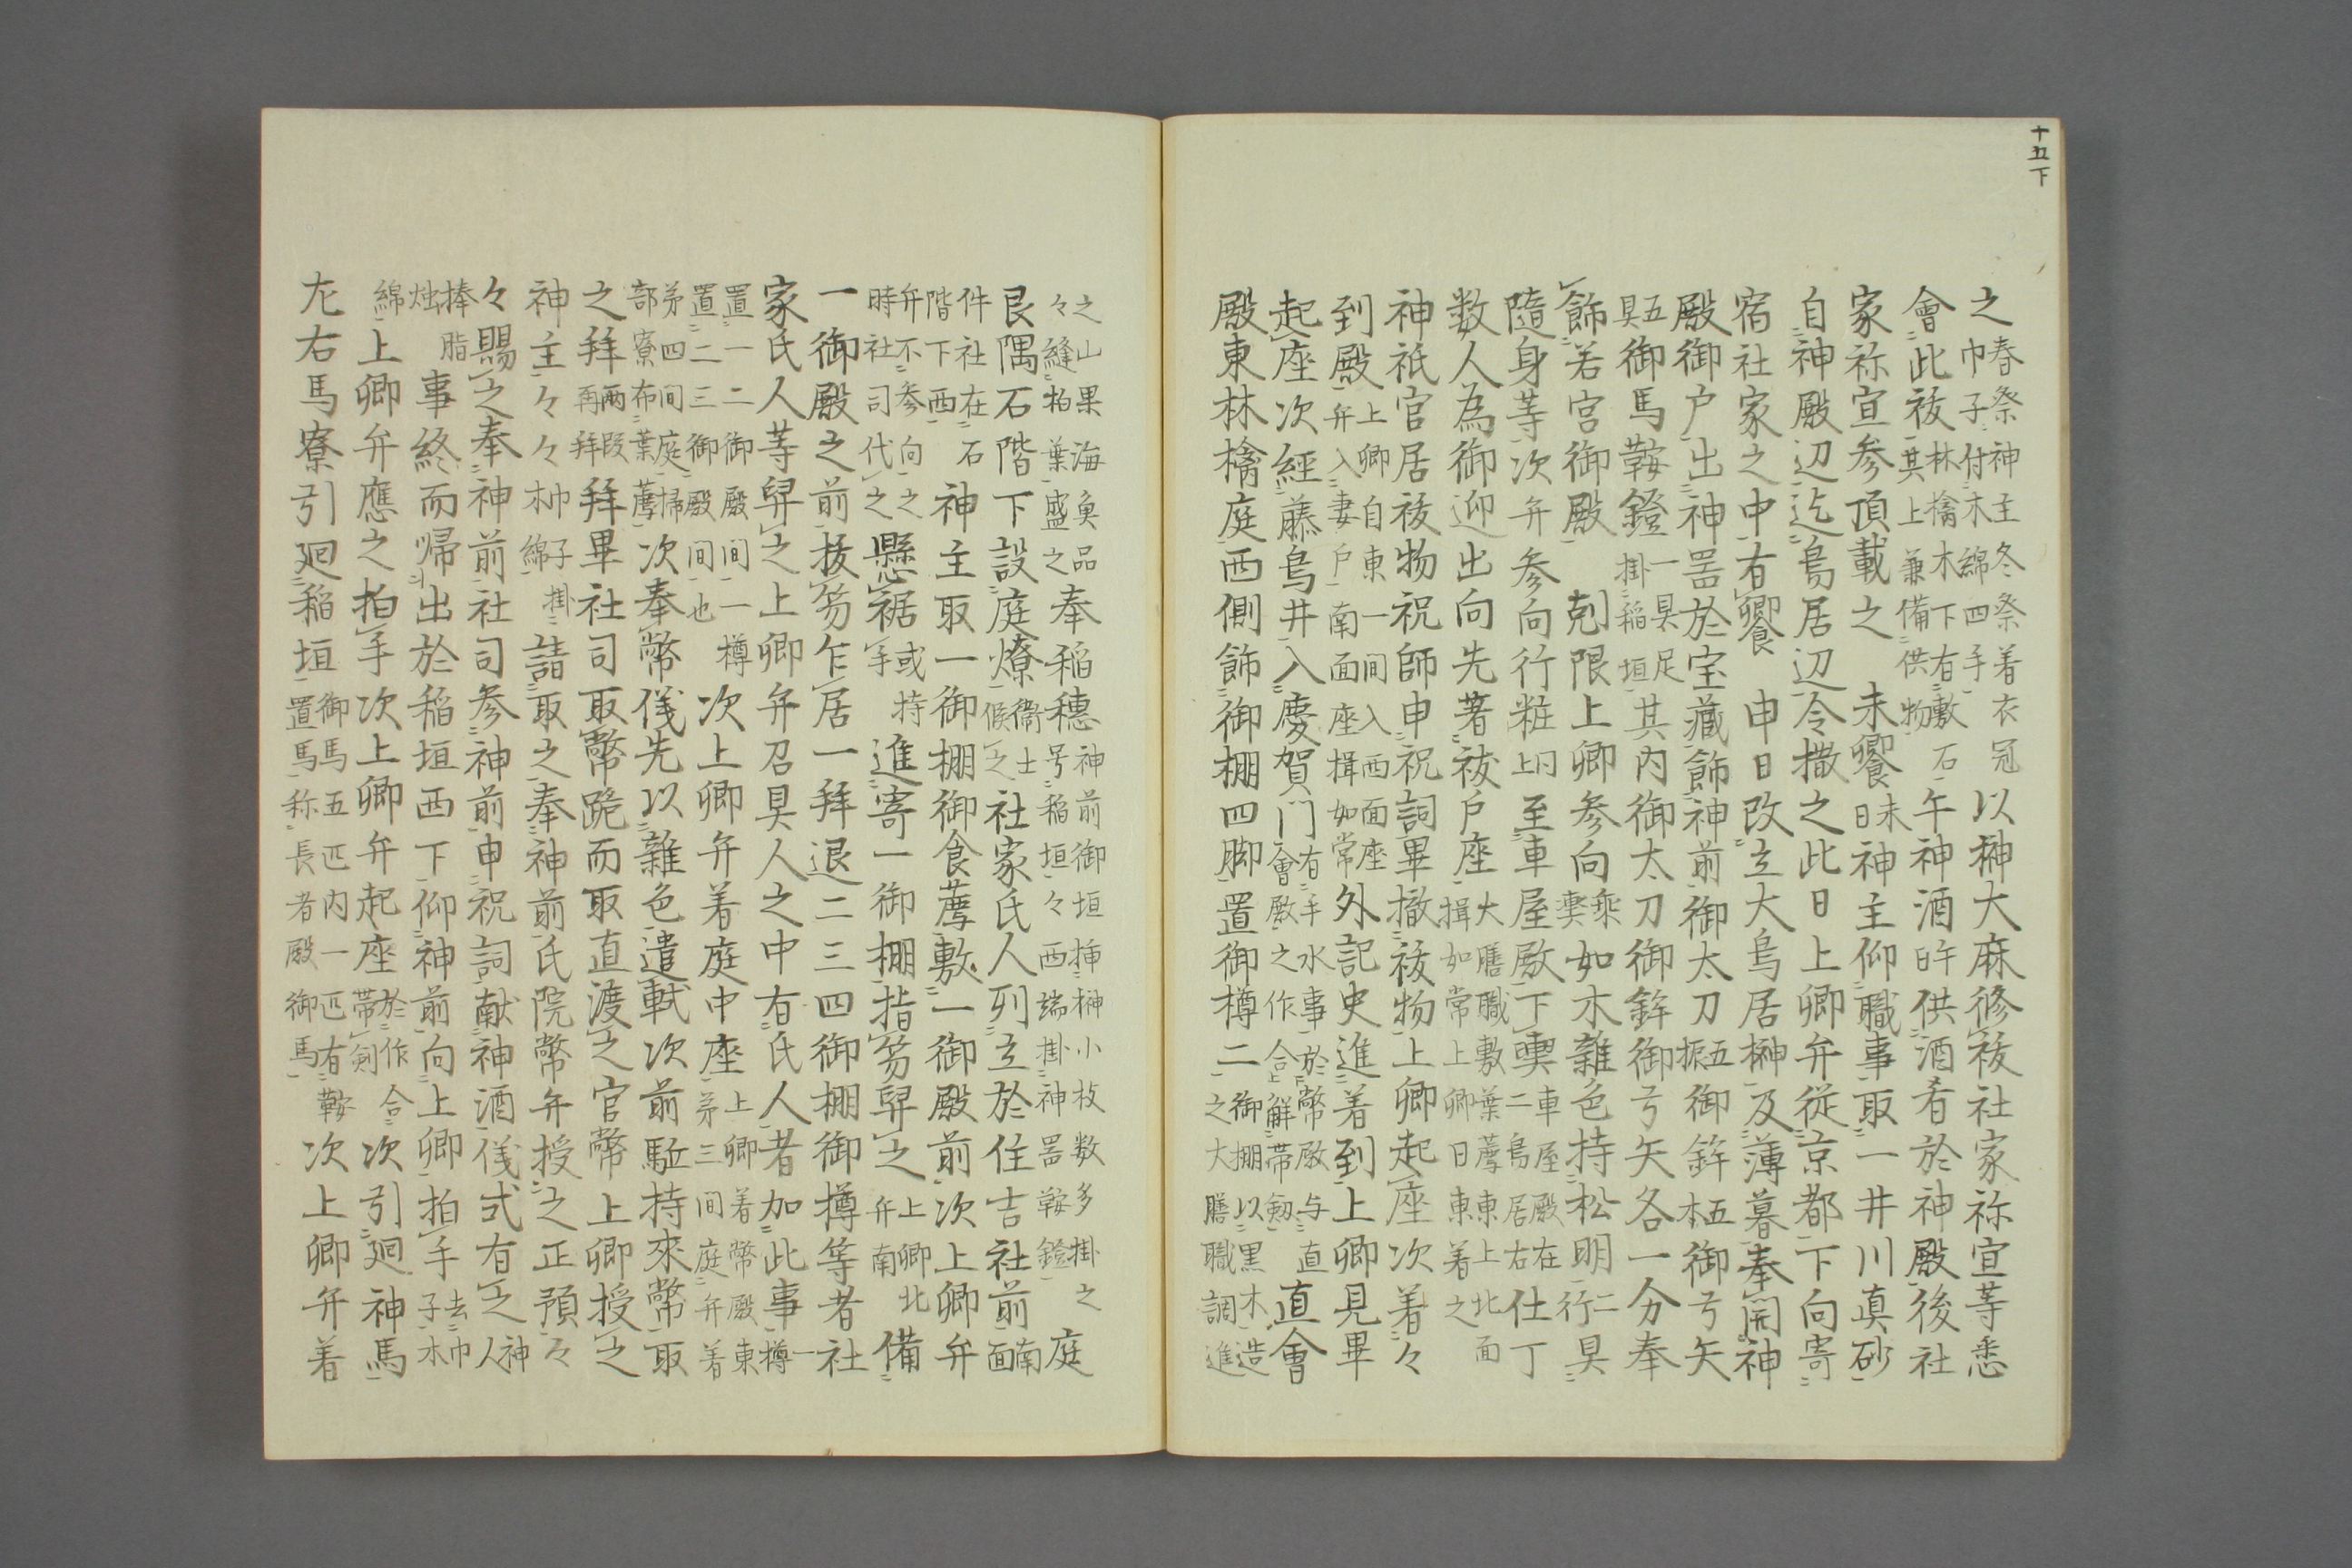 十五下
之春祭神主冬祭着衣冠巾子付木綿四手以榊大麻修祓社家祢宜等悉
會此祓林檎木下有敷石其上兼備供物午神酒午日供酒肴於神殿後社
家祢宜参頂載之 未饗未日神主仰職事取一井川真砂
自神殿辺迄鳥居辺令撒之此日上卿弁従京都下向寄
宿社家之中有饗 申日改立大鳥居榊及薄暮奉開神
殿御戸出神器於宝蔵飾神前御太刀五振御鉾五本御弓矢
五具御馬鞍鐙一具足掛稲垣其内御太刀御鉾御弓矢各一分奉
飾若宮御殿 剋限上卿参向乗輿如木雑色持松明二行具
隨身等次弁参向行粧同上至車屋殿下輿車屋殿在二鳥居右仕丁
数人為御迎出向先著祓戸座大膳職敷葉薦東上北面揖如常上卿日東着之
神祇官居祓物祝師申祝詞畢撤祓物上卿起座次着々
到殿上卿自東一间入西面座弁入妻戸南面座揖如常外記史進着到上卿見畢
起座次經藤鳥井入慶賀门有手水事於幣殿与直會殿之作合解帯剱直會
殿東林檎庭西側飾御棚四脚置御樽二御棚以黒木造之大膳職調進
之山果海魚品々縫柏葉盛之奉稲穗神前御垣挿榊小枝数多掛之号稲垣々西端掛神器鞍鐙庭
艮隅石階下設庭燎衞士候之社家氏人列立於住吉社前南面
件社在石階下西神主取一御棚御食薦敷一御殿前次上卿弁
弁不参向之時社司代之懸裾或持手進寄一御棚搢笏舁之上卿北弁南備
一御殿之前抜笏乍居一拜退二三四御棚御樽等者社
家氏人等舁之上卿弁召具人之中有氏人者加此事樽一
置一二御殿间一樽置二三御殿间也次上卿弁着庭中座上卿着幣殿東苐三间庭弁着
苐四间庭掃部寮布葉薦次奉幣儀先以雑色遣軾次前駈持來幣取
之拜両段再拜拜畢社司取幣跪而取直渡之官幣上卿授之
神主々々木綿掛請取之奉神前氏院幣弁授之正預々
々賜之奉神前社司参神前申祝詞献神酒儀式有之神人
捧脂烛事終而帰出於稲垣西下仰神前向上卿拍手去巾子木
綿上卿弁應之拍手次上卿弁起座於作合帯剣次引廻神馬
左右馬寮引廻稲垣御馬五匹内一匹有鞍置馬称長者殿御馬次上卿弁着